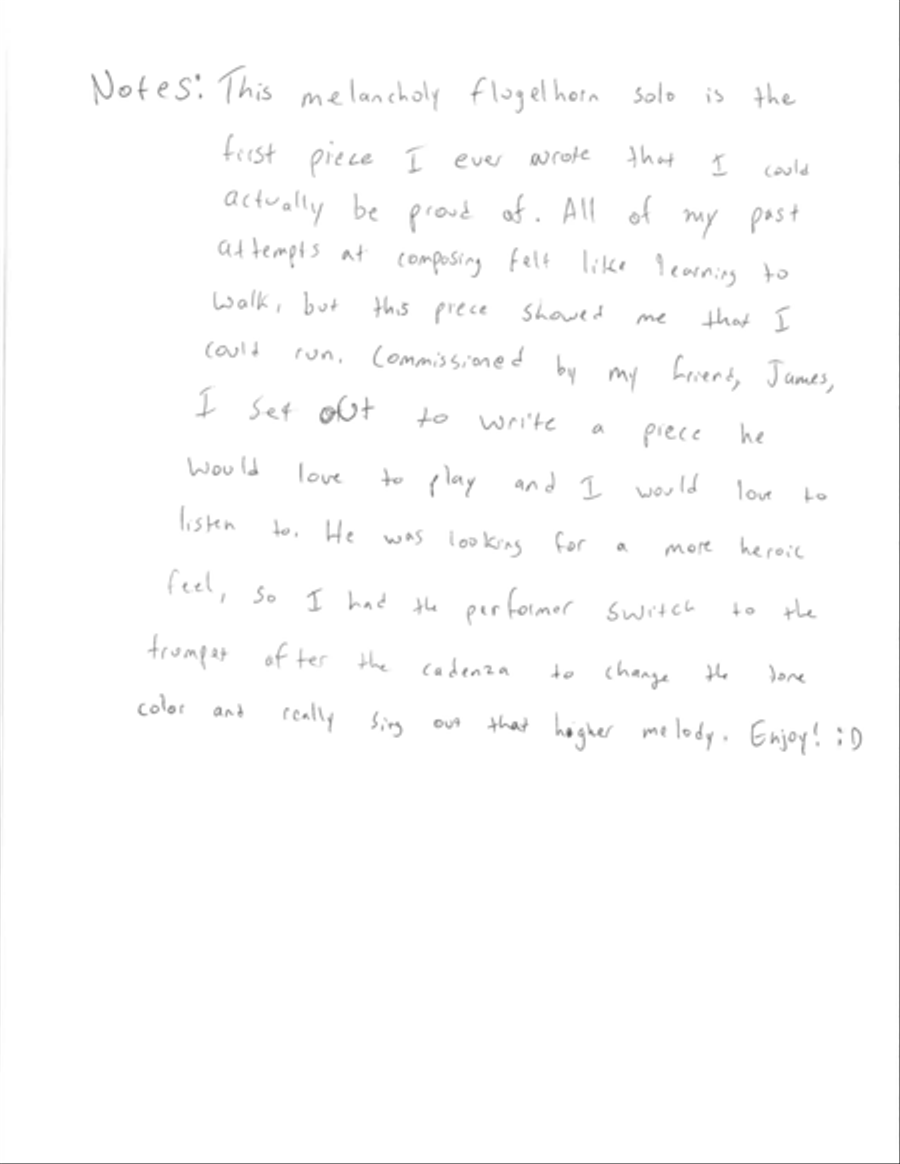 Notes: This melancholy flugelhorn solo is the
first piece I ever wrote that I could
actually be proud of. All of my past
attempts at composing felt like learning to
walk, but this piece showed me that I
could run. Commissioned by my friend, James,
I set out to write a piece he
would love to play and I would love to
listen to. He was looking for a more heroic
feel, so I had the performer switch to the
trumpet after the cadenza to change the tone
color and really sing out that higher melody. Enjoy! :D